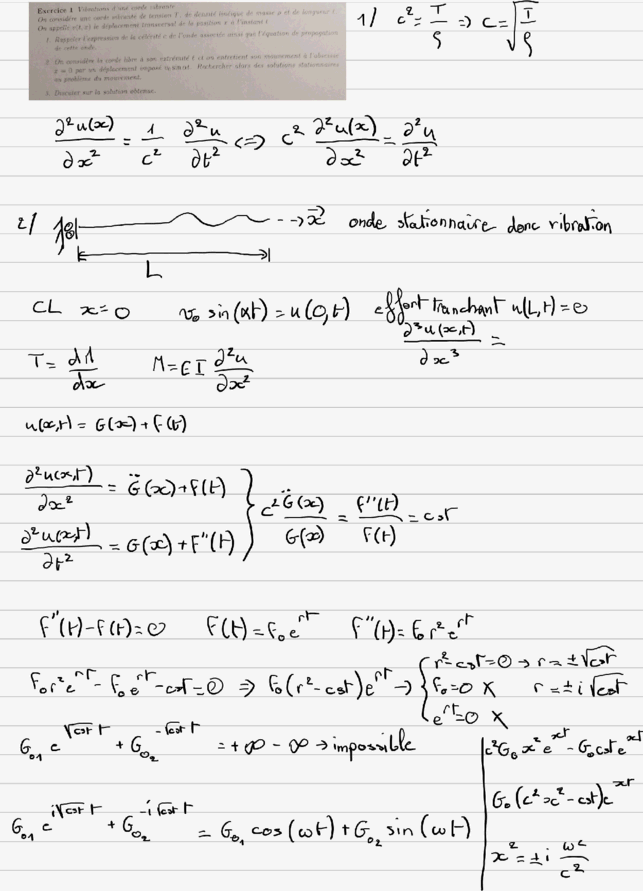 Exercice 1 Vibrations d'une corde vibrante
On considère une corde vibrante de tension T, de densité linéique de masse ρ et de longueur l.
On appelle v(x,t) le déplacement transversal de la position x à l'instant t
1. Rappeler l'expression de la célérité c de l'onde associée ainsi que l'équation de propagation
de cette onde.
2. On considère la corde libre à son extrémité l et on entretient son mouvement à l'abscisse
x = 0 par un déplacement imposé v₀ sin αt. Rechercher alors des solutions stationnaires
au problème du mouvement.
3. Discuter sur la solution obtenue.
1/ c² = T/ρ => c = √(T/ρ)
∂²u(x)/∂x² = 1/c² ∂²u/∂t² <=> c² ∂²u(x)/∂x² = ∂²u/∂t²
2/ --> x⃗ onde stationnaire donc vibration
L
CL x=0 v₀ sin(αt) = u(0,t) effort tranchant u(L,t) = 0
∂³u(x,t)/∂x³ =
T = dM/dx M = EI ∂²u/∂x²
u(x,t) = G(x) + F(t)
∂²u(x,t)/∂x² = G̈(x) + F(t)
∂²u(x,t)/∂t² = G(x) + F''(t)
} c² G̈(x)/G(x) = F''(t)/F(t) = cst
F''(t) - F(t) = 0 F(t) = F₀e^rt F''(t) = F₀r²e^rt
F₀r²e^rt - F₀e^rt - cst = 0 => F₀(r² - cst)e^rt → { r² - cst = 0 → r = ±√cst
F₀ = 0 X r = ±i√cst
e^rt = 0 X
G₀₁ e^√cst t + G₀₂^-√cst t = +∞ - ∞ → impossible
G₀₁ e^i√cst t + G₀₂^-i√cst t = G₀₁ cos(ωt) + G₀₂ sin(ωt)
c²G₀x²e^xt - G₀cste^xt
G₀(c²x² - cst)e^xt
x² = ±i ω²/c²